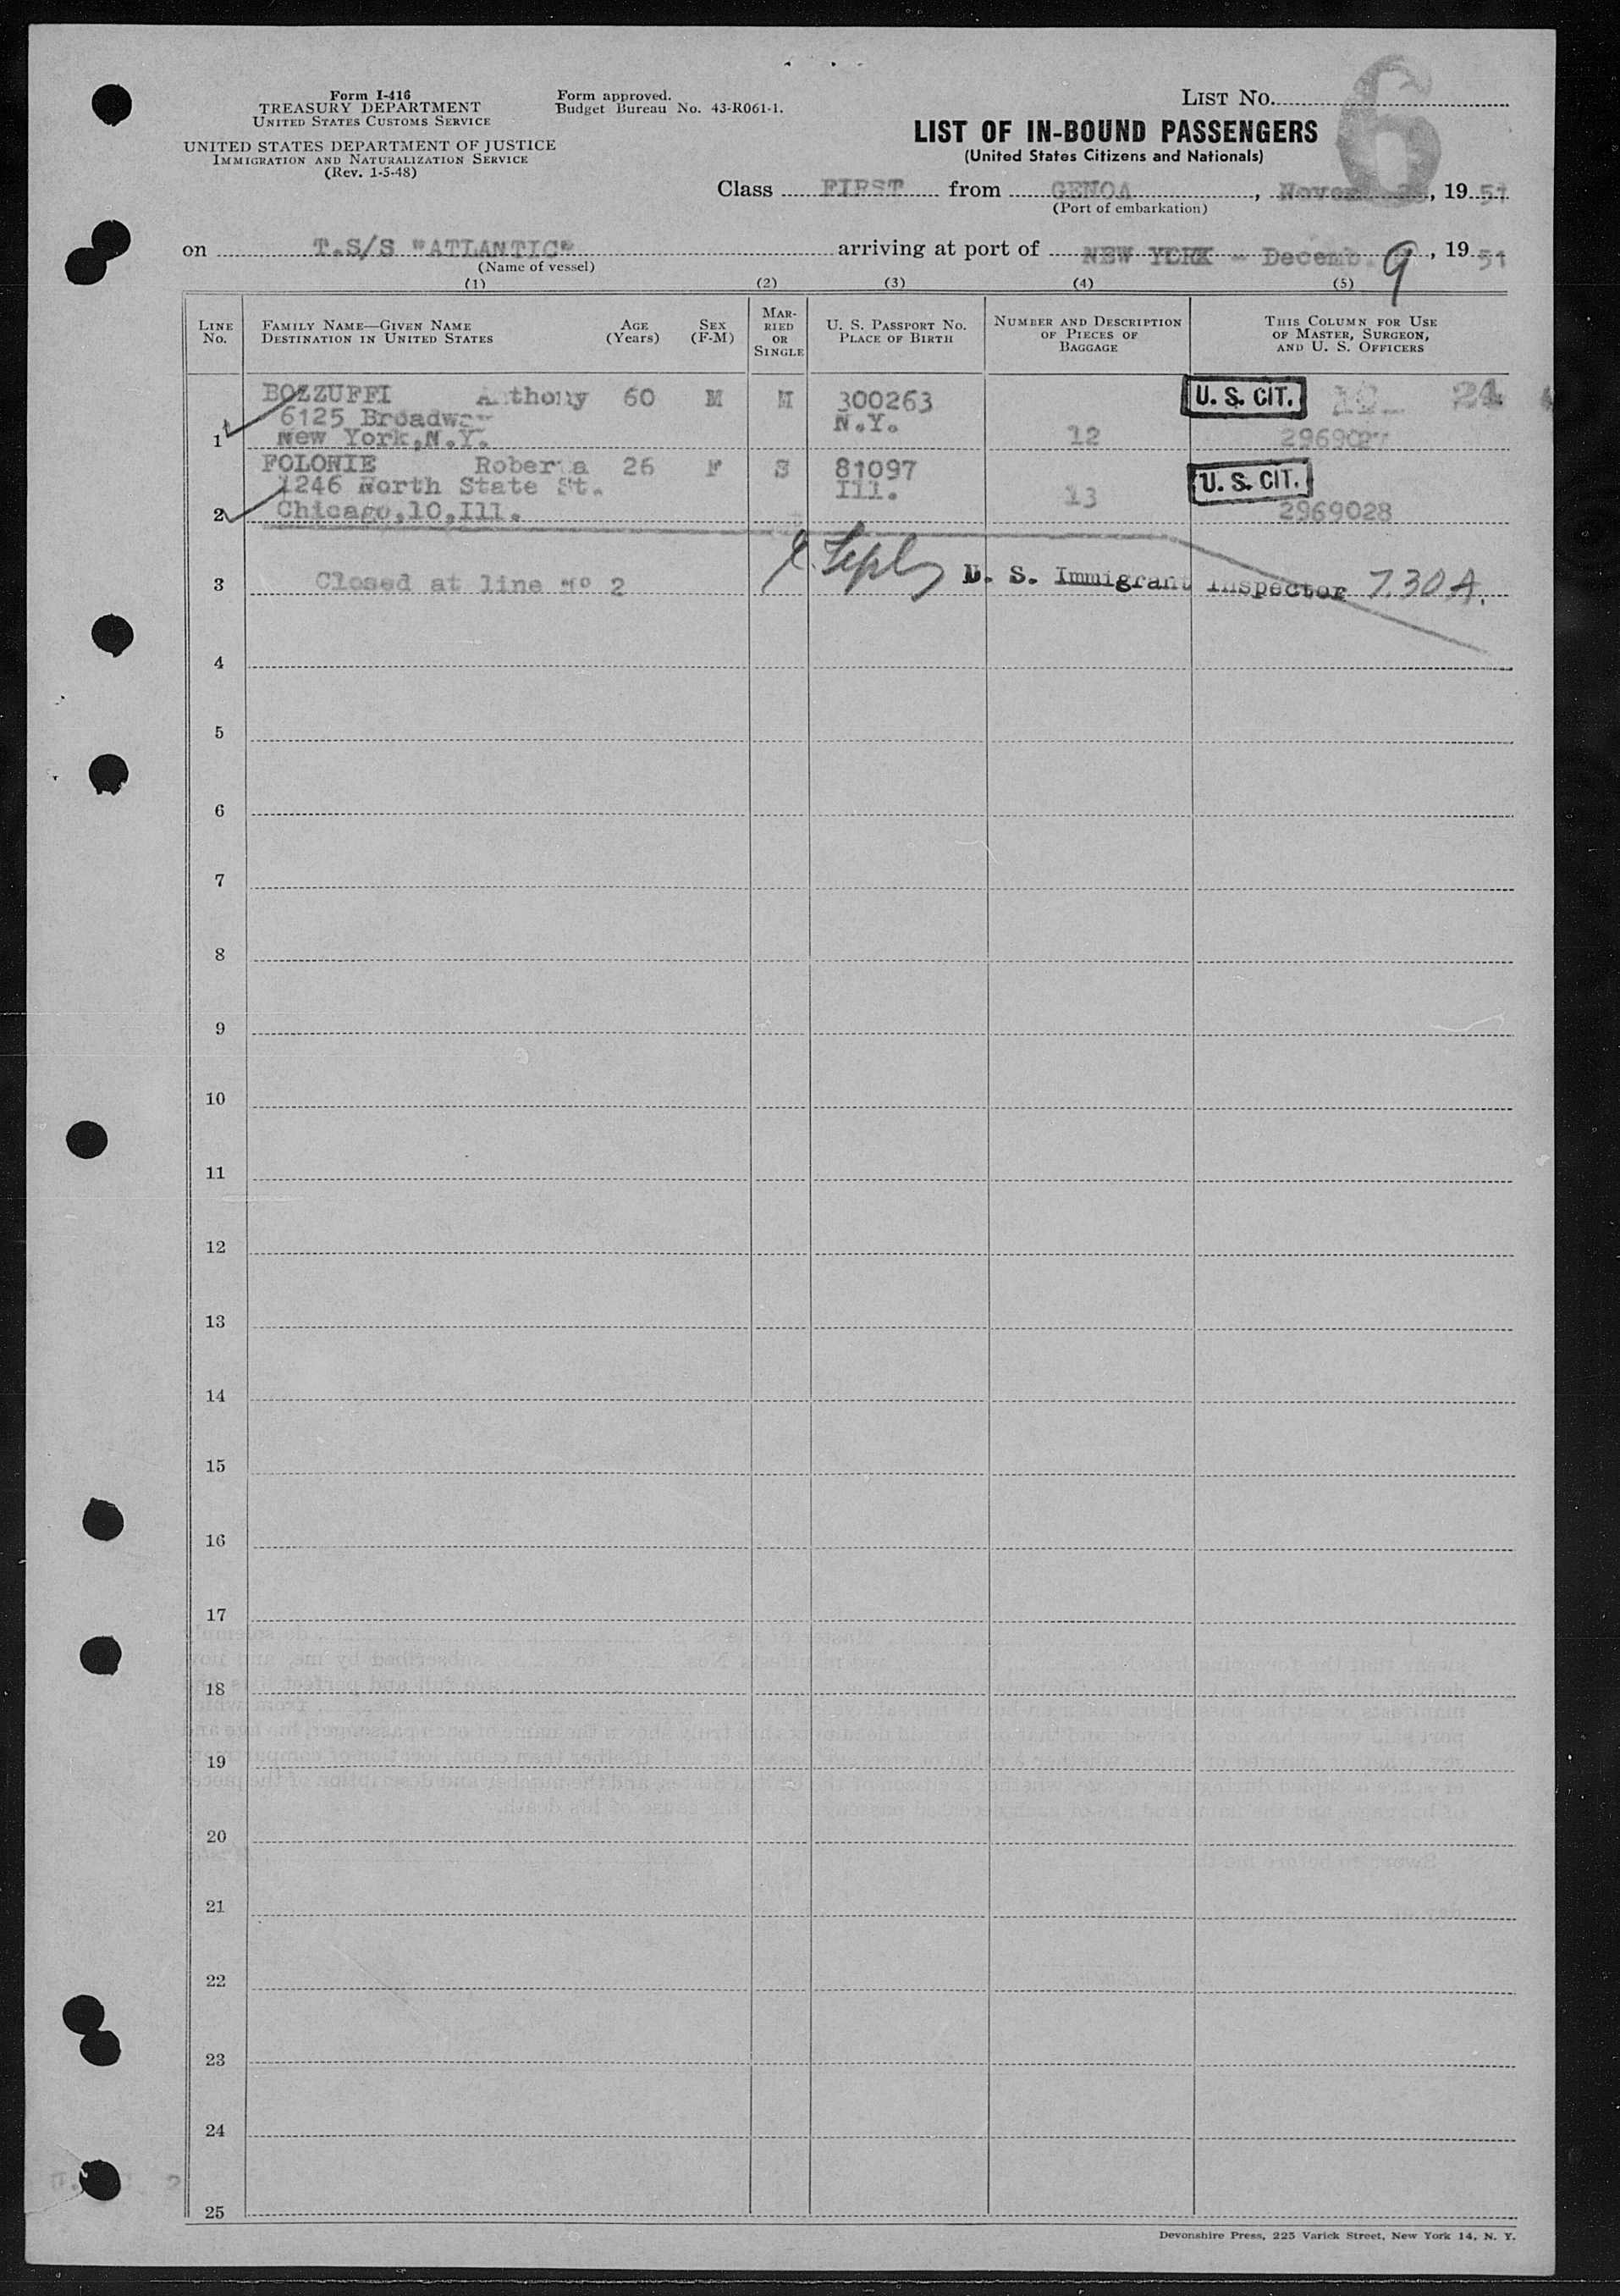 Form I-416
TREASURY DEPARTMENT
UNITED STATES CUSTOMS SERVICE
UNITED STATES DEPARTMENT OF JUSTICE
IMMIGRATION AND NATURALIZATION SERVICE
(Rev. 1-5-48)
Form approved.
Budget Bureau No. 43-R061-1.
LIST NO.
6
LIST OF IN-BOUND PASSENGERS
(United States Citizens and Nationals)
Class FIRST from GENOA, , 19 51
(Port of embarkation)
on T.S/S "ATLANTIC" arriving at port of NEW YORK - Decemb. 9, 19 51
(Name of vessel)
(1) (2) (3) (4) (5)
LINE NO.
FAMILY NAME—GIVEN NAME
DESTINATION IN UNITED STATES
AGE (Years)
SEX (F-M)
MARRIED OR SINGLE
U. S. PASSPORT NO.
PLACE OF BIRTH
NUMBER AND DESCRIPTION OF PIECES OF BAGGAGE
THIS COLUMN FOR USE OF MASTER, SURGEON, AND U. S. OFFICERS
BOZZUFFI Anthony 60 M M 300263 U. S. CIT. 24
6125 Broadway N.Y.
1 New York,N.Y. 12 2969027
FOLONIE Roberta 26 F S 81097 U. S. CIT.
1246 North State St. Ill.
2 Chicago,10,Ill. 13 2969028
3 Closed at line No 2 U. S. Immigrant Inspector 7.30 A.
4
5
6
7
8
9
10
11
12
13
14
15
16
17
18
19
20
21
22
23
24
25
Devonshire Press, 225 Varick Street, New York 14, N. Y.